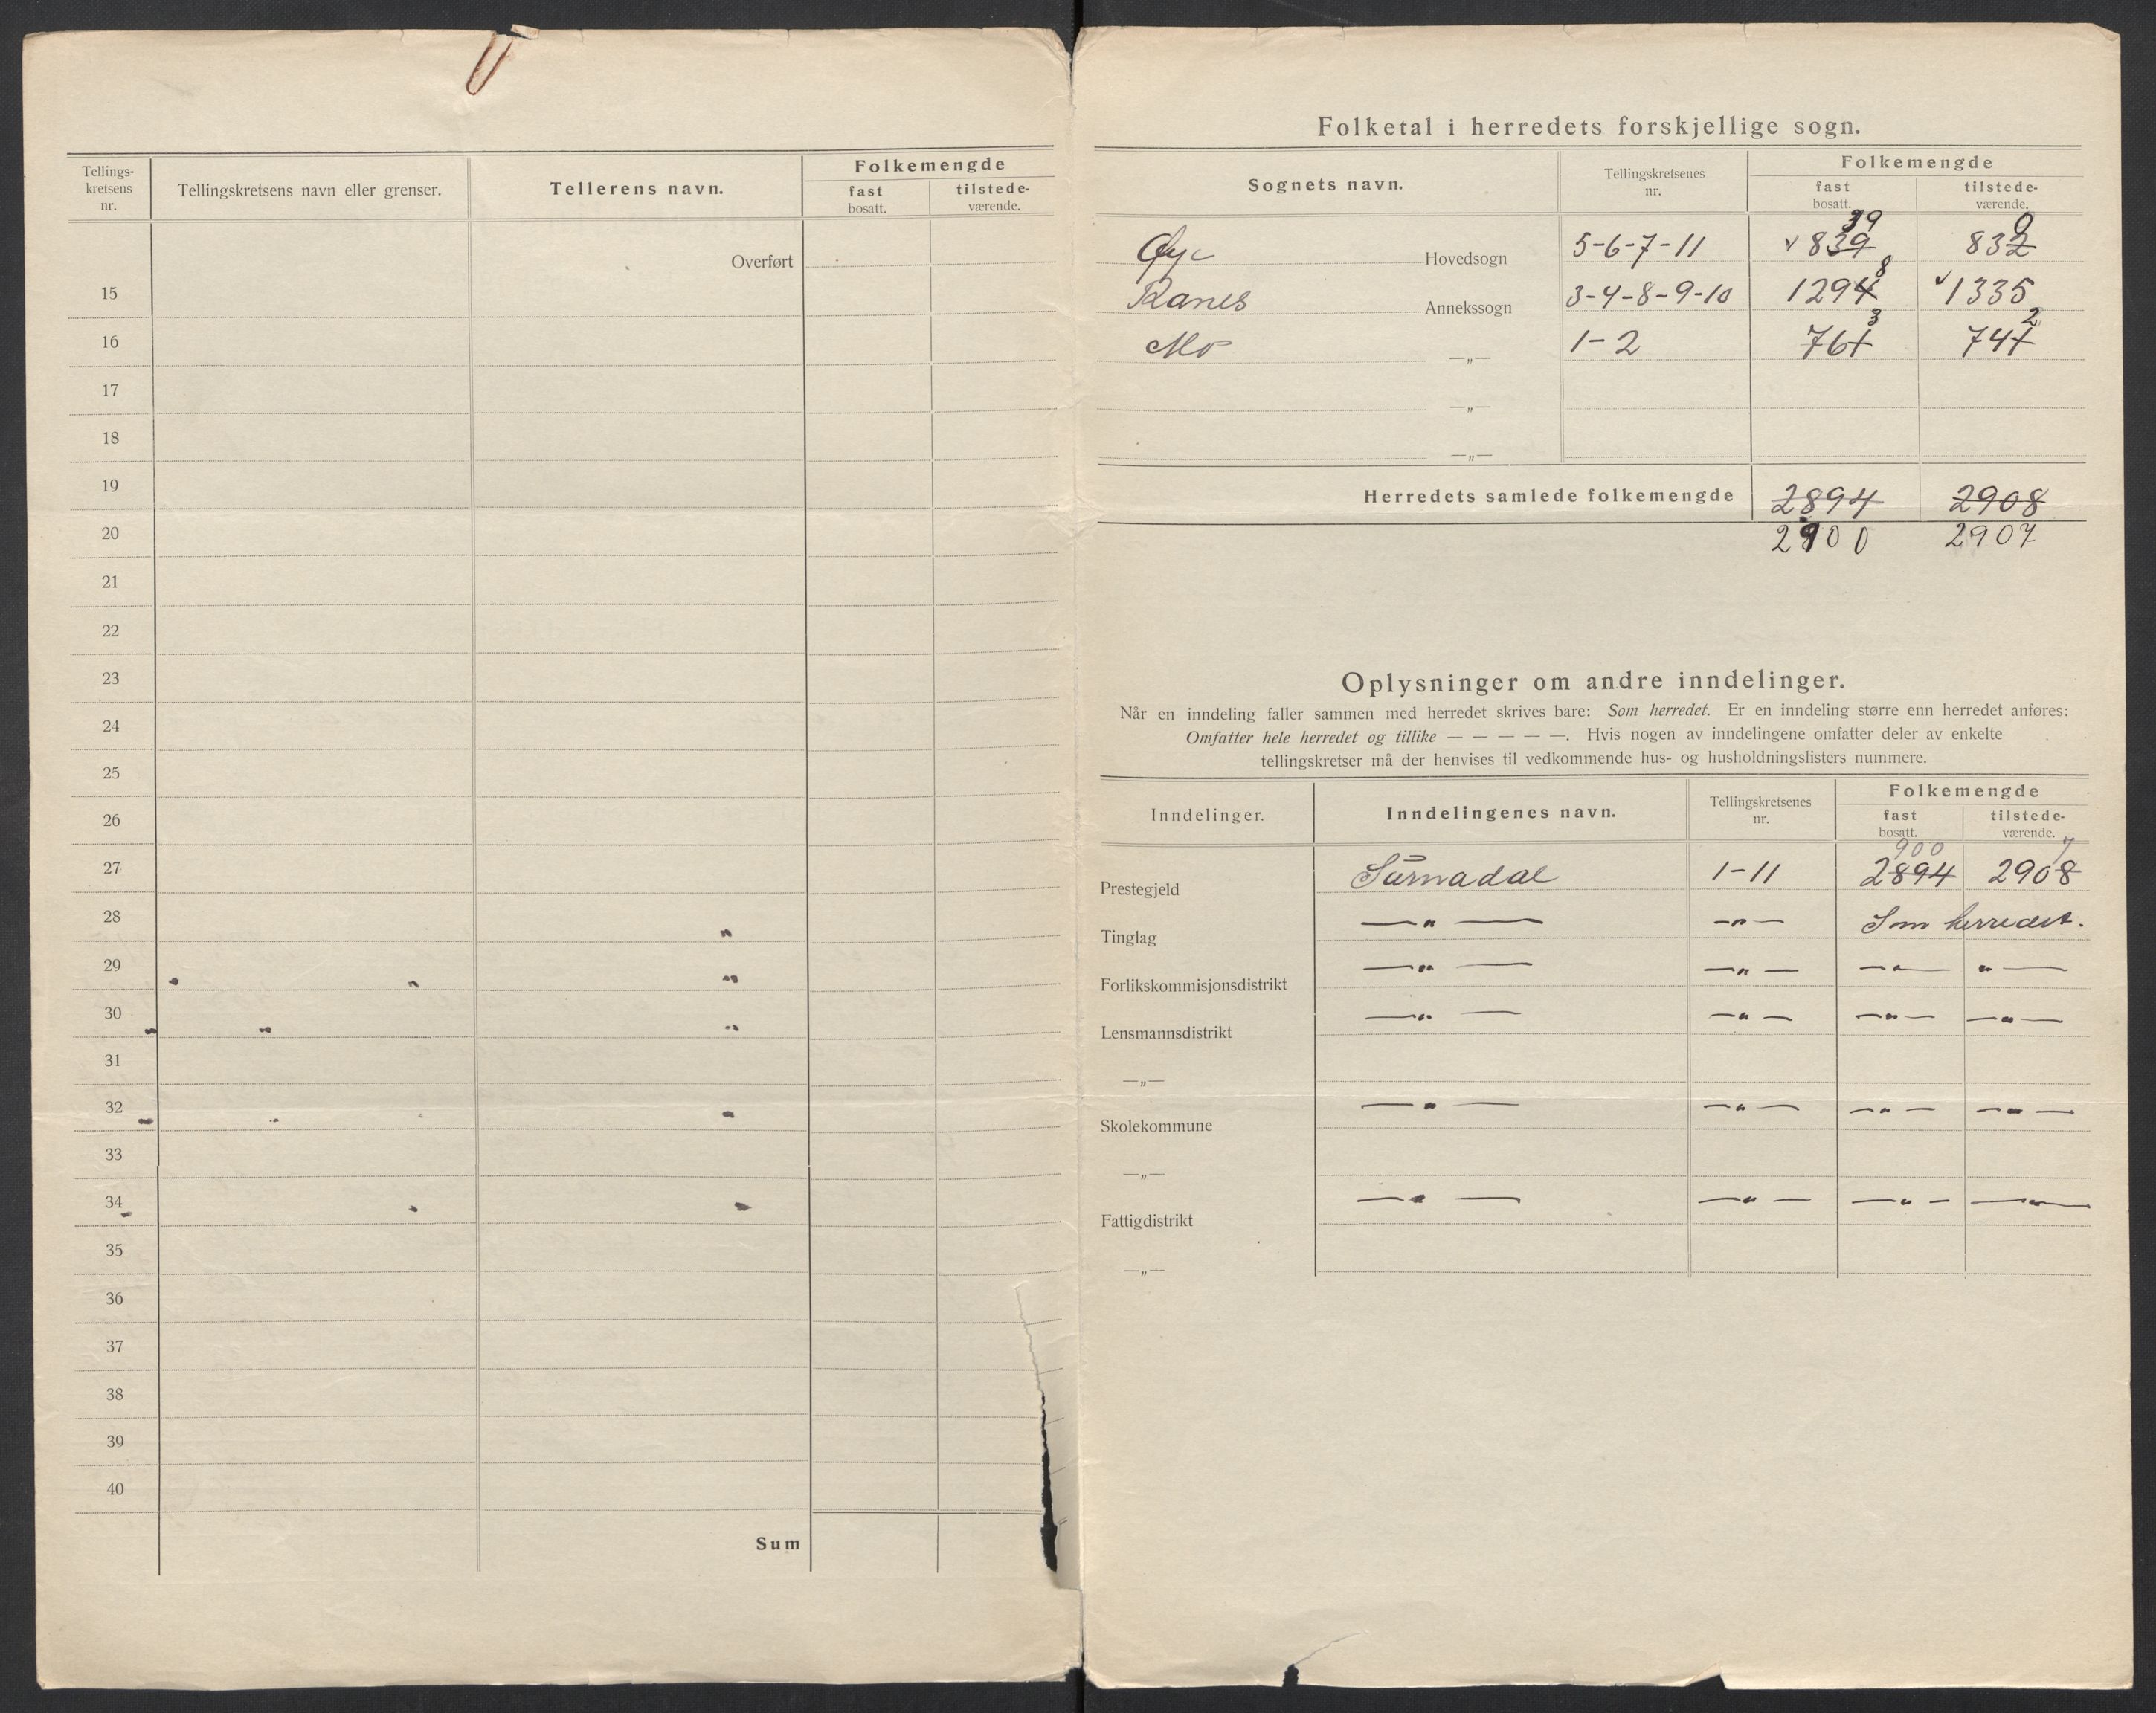 Tellings-
kretsens
nr.
Tellingskretsens navn eller grenser.
Tellerens navn.
Folkemengde
fast
bosatt.
tilstede-
værende.
Overført
15
16
17
18
19
20
21
22
23
24
25
26
27
28
29
30
31
32
33
34
35
36
37
38
39
40
Sum
Folketal i herredets forskjellige sogn.
Sognets navn.
Tellingskretsenes
nr.
Folkemengde
fast
bosatt.
tilstede-
værende.
39 0
Øye Hovedsogn 5-6-7-11 v 839 832
8
Ranes Annekssogn 3-4-8-9-10 1294 v 1335
3 2
Mo —„— 1-2 761 741
—„—
—„—
Herredets samlede folkemengde 2894 2908
2900 2907
Oplysninger om andre inndelinger.
Når en inndeling faller sammen med herredet skrives bare: Som herredet. Er en inndeling større enn herredet anføres:
Omfatter hele herredet og tillike — — — — —. Hvis nogen av inndelingene omfatter deler av enkelte
tellingskretser må der henvises til vedkommende hus- og husholdningslisters nummere.
Inndelinger.
Inndelingenes navn.
Tellingskretsenes
nr.
Folkemengde
fast
bosatt.
tilstede-
værende.
900 7
Prestegjeld Surnadal 1-11 2894 2908
Tinglag —„— —„— Som herredet.
Forlikskommisjonsdistrikt —„— —„— —„— —„—
Lensmannsdistrikt —„— —„— —„— —„—
—„—
Skolekommune —„— —„— —„— —„—
—„—
Fattigdistrikt —„— —„— —„— —„—
—„—